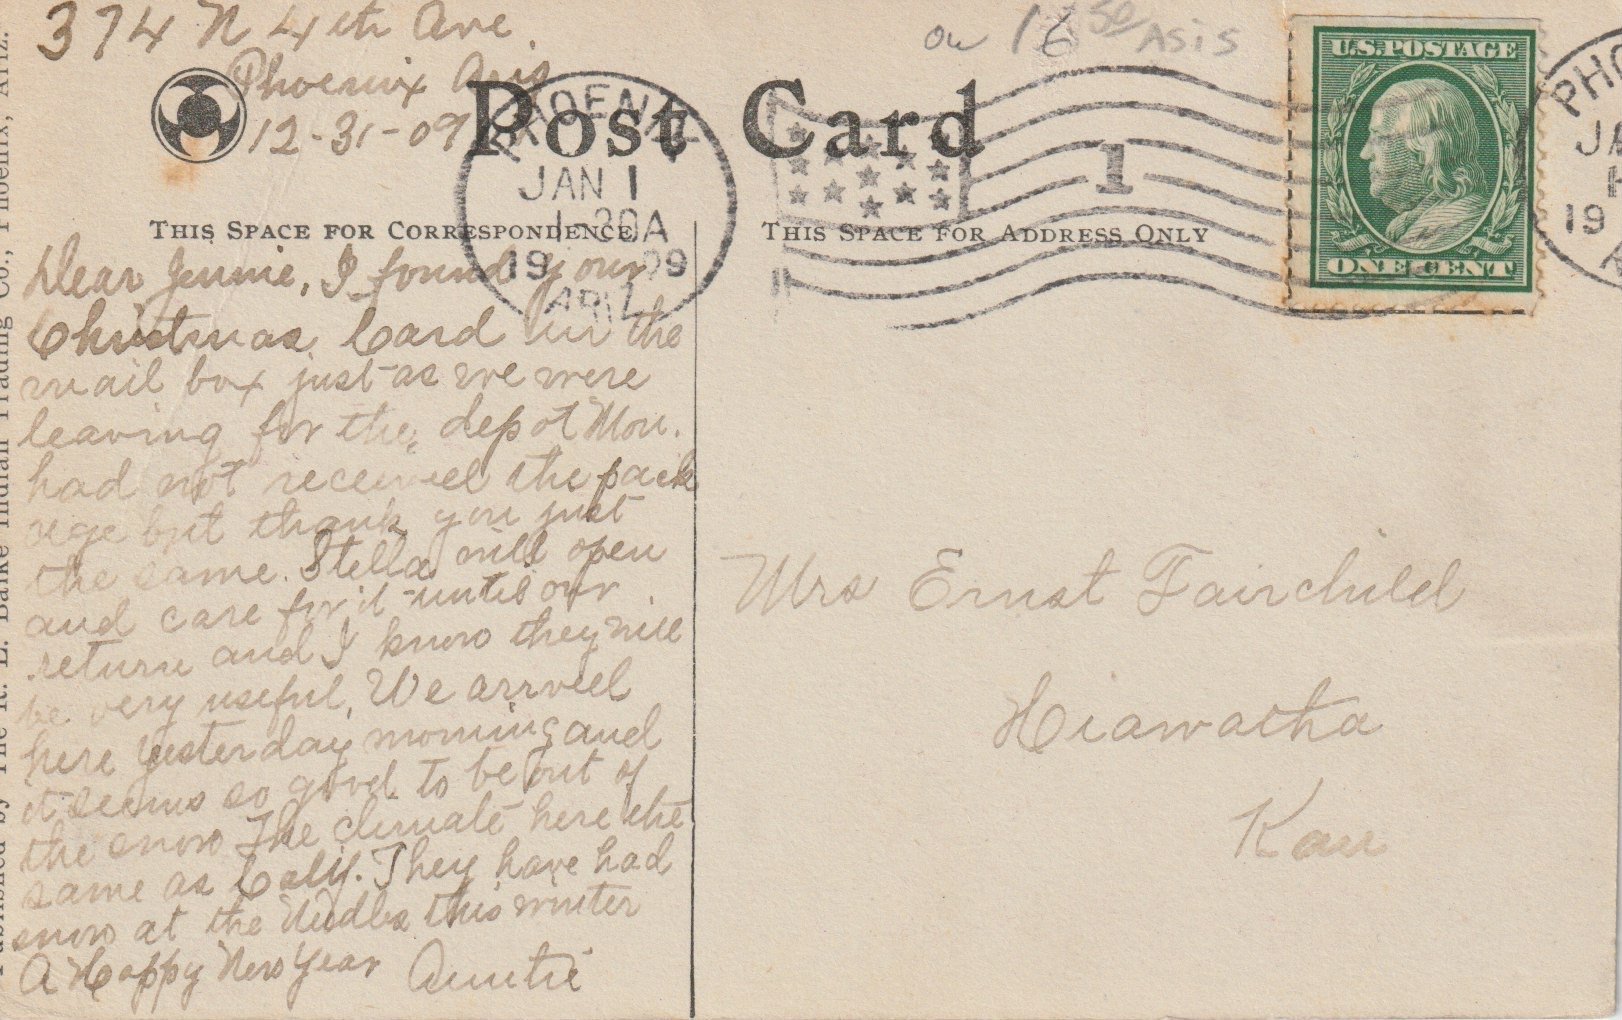 374 N 4th Ave
Phoenix Aris
12-31-09
ow 16 50 ASIS
Post Card
PHOENIX
JAN 1
1-30A
19 09
ARIZ.
1
U.S. POSTAGE
ONE CENT
PHO
JA
19
THIS SPACE FOR CORRESPONDENCE
THIS SPACE FOR ADDRESS ONLY
Dear Jennie, I found your
Christmas Card in the
mail box just as we were
leaving for the depot Mon.
had not received the pack
age but thank you just
the same. Stella will open
and care for it until our
return and I know they will
be very useful, We arrived
here yesterday morning and
it seems so good to be out of
the snow The climate here the
same as Calif. They have had
snow at the Nedles this winter
A Happy New Year Auntie
Mrs Ernst Fairchild
Hiawatha
Kan
Published by The R. E. Balke Indian Trading Co., Phoenix, Ariz.